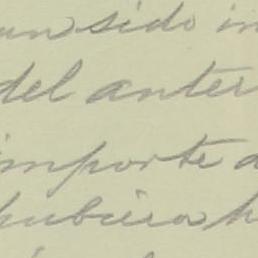 un sido in
del anter
importe d
hubiera h